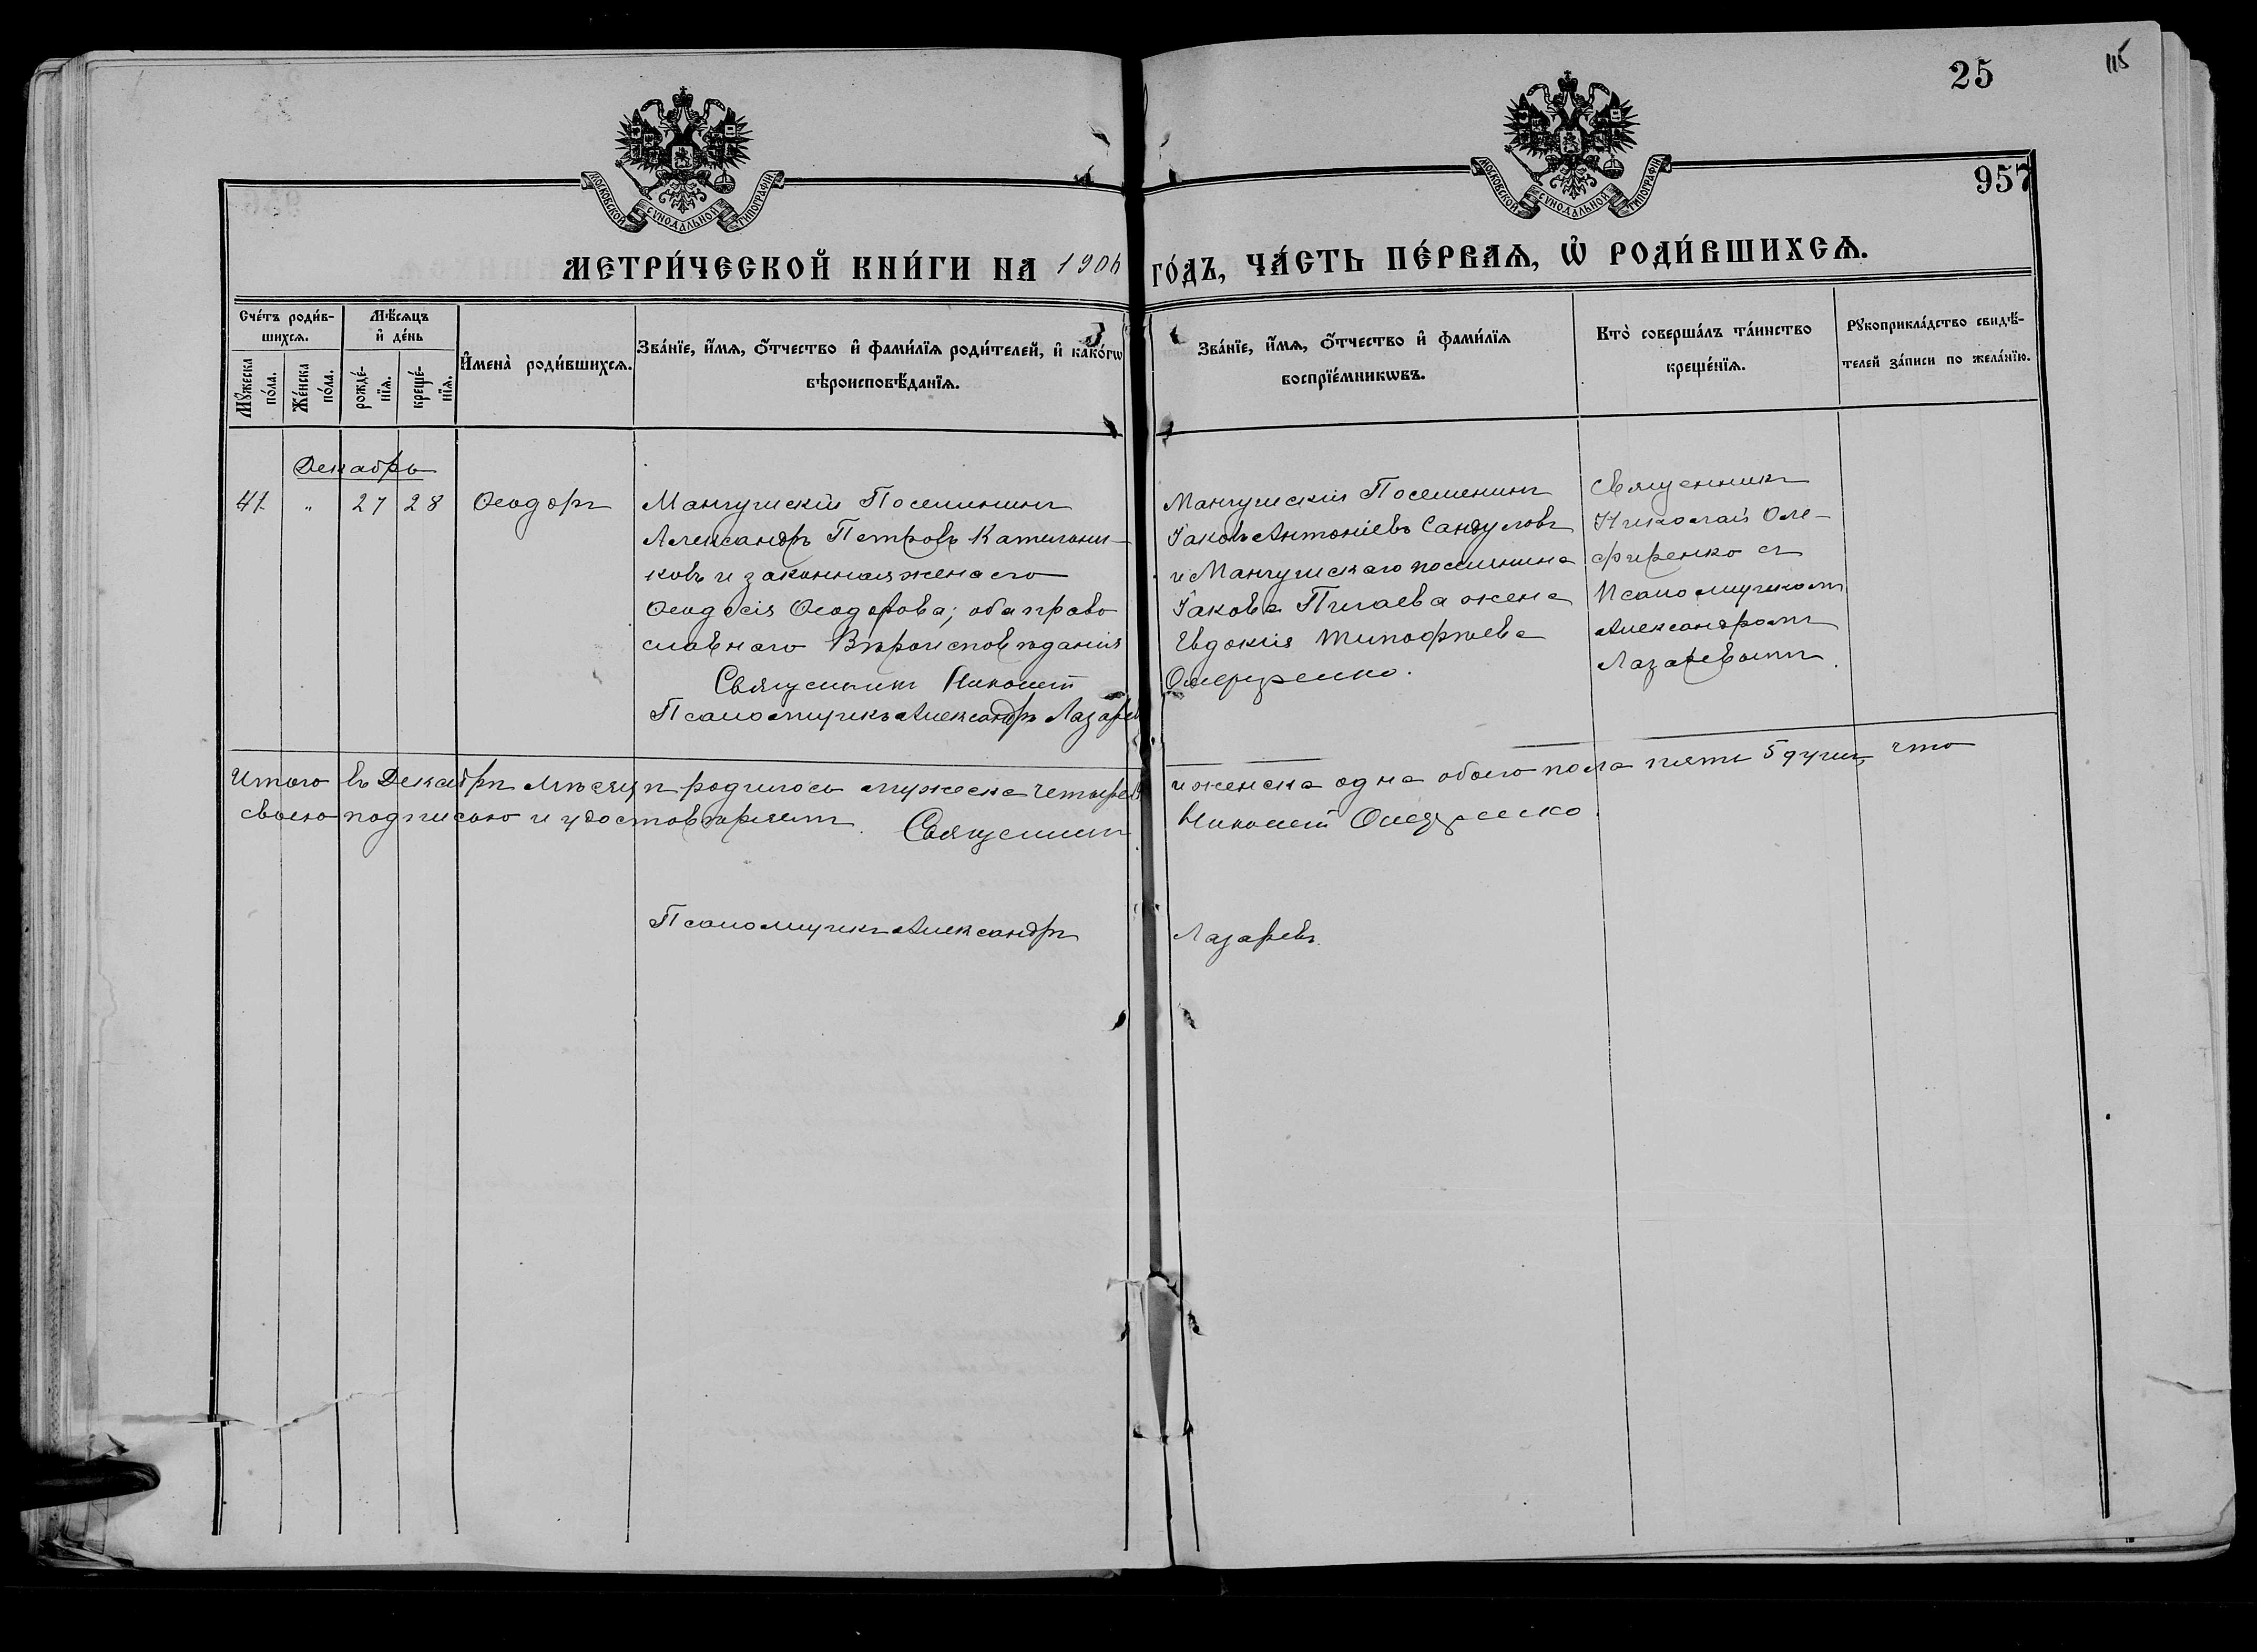 25
115
957
МОСКОВСКОЙ СУНОДАЛЬНОЙ ТИПОГРАФІИ
МОСКОВСКОЙ СУНОДАЛЬНОЙ ТИПОГРАФІИ
МЕТРИ́ЧЕСКОЙ КНИ́ГИ НА 1906 ГО́ДЪ, ЧА́СТЬ ПЕ́РВАѦ, Ѡ҆ РОДИ́ВШИХСѦ.
Сче́тъ роди́в-
шихсѧ.
Мꙋжеска по́ла.
Же́нска по́ла.
Мѣ́сѧцъ
и҆ де́нь
рожде́-
нїѧ.
креще́-
нїѧ.
И҆мена̀ роди́вшихсѧ.
Зва́нїе, и҆́мѧ, ѻ҆́тчество и҆ фами́лїѧ роди́телей, и҆ како́гѡ
вѣроисповѣ́данїѧ.
Зва́нїе, и҆́мѧ, ѻ҆́тчество и҆ фами́лїѧ
воспрїе́мникѡвъ.
Кто̀ соверша́лъ та́инство
креще́нїѧ.
Рꙋкоприкла́дство свидѣ́-
телей за́писи по жела́нїю.
Декабрь
41 " 27 28 Ѳеодоръ
Мангушскій Поселянинъ
Александръ Петровъ
ковъ и законная жена его
Ѳеодосія Ѳеодорова; оба право
славнаго Вѣроисповѣданія
Священникъ Николай
Псаломщикъ Александръ Лазарев
Мангушскій Поселянинъ
Іаковъ Антоніевъ Сандуловъ
и Мангушскаго поселянина
Іакова Пичаева жена
Евдокія Тимофѣева
Олефиренко.
Священникъ
Николай Оле-
фиренко съ
Псаломщикомъ
Александромъ
Лазаревымъ.
Итого въ Декабрѣ мѣсяцѣ родилось мужеска четыре и женска одна обоего пола пять 5 душъ, что
своею подписью и удостовѣряемъ. Священникъ Николай Олефиренко.
Псаломщикъ Александръ Лазаревъ.